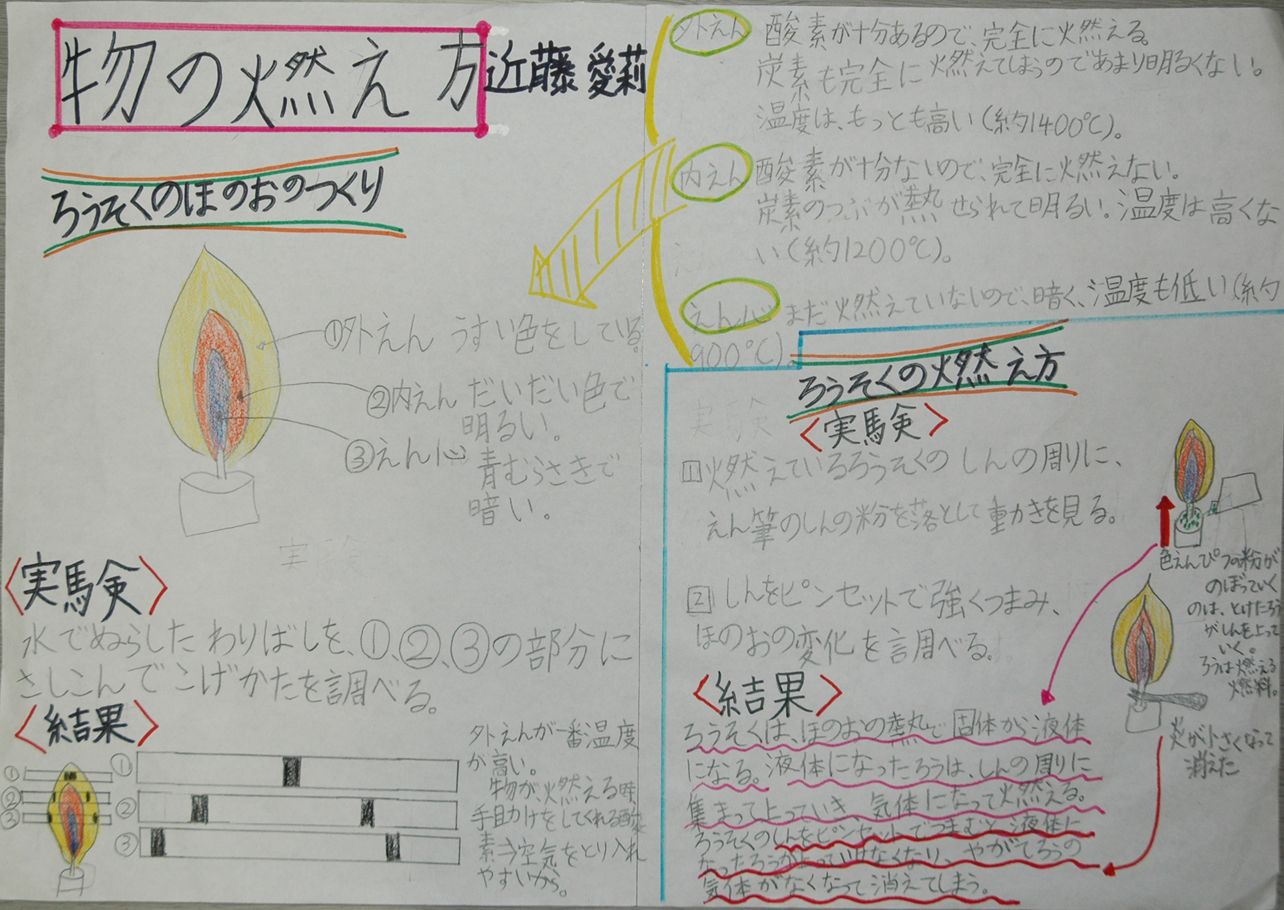 物の燃え方
近藤 愛莉
ろうそくのほのおのつくり
①外えん うすい色をしている。
②内えん だいだい色で
明るい。
③えん心 青むらさきで
暗い。
<実験>
水でぬらした わりばしを、①、②、③の部分に
さしこんで こげかたを調べる。
<結果>
①
②
③
①
②
③
外えんが一番温度
が高い。
物が、燃える時、
手助けをしてくれる酸
素→空気をとり入れ
やすいから。
外えん 酸素が十分あるので、完全に燃える。
炭素も完全に燃えてしまうのであまり明るくない。
温度は、もっとも高い(約1400℃)。
内えん 酸素が十分ないので、完全に燃えない。
炭素のつぶが熱せられて明るい。温度は高くな
い(約1200℃)。
えん心 まだ燃えていないので、暗く、温度も低い(約
900℃)。
ろうそくの燃え方
<実験>
1 燃えているろうそくの しんの周りに、
えん筆のしんの粉を落として動かきを見る。
2 しんをピンセットで強くつまみ、
ほのおの変化を調べる。
色えんぴつの粉が
のぼっていく
のは、とけたろう
がしんを上って
いく。
ろうは燃える
燃料。
火が小さくなって
消えた
<結果>
ろうそくは、ほのおの熱で固体が液体
になる。液体になったろうは、しんの周りに
集まって上っていき、気体になって燃える。
ろうそくのしんをピンセットでつまむと、液体に
なったろうが上っていけなくなり、やがてろうの
気体がなくなって消えてしまう。